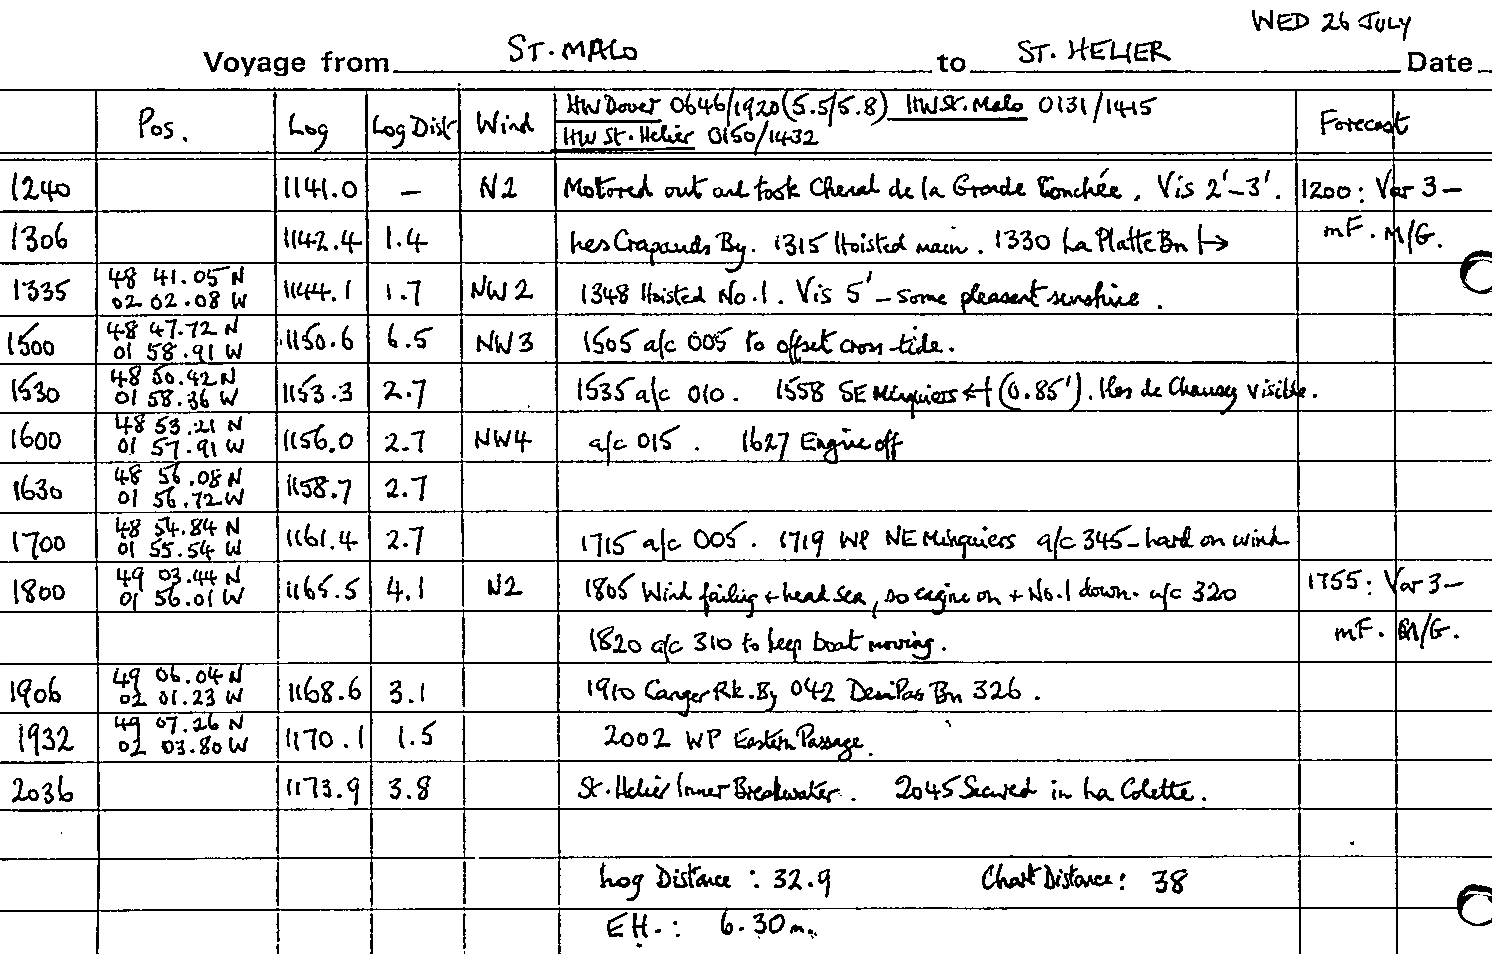 WED 26 JULY
Voyage from ST. MALO to ST. HELIER Date
Pos. Log Log Dist Wind HW Dover 0646/1920 (5.5/5.8) HW St. Malo 0131/1415 Forecast
HW St. Helier 0150/1432
1240 1141.0 – N2 Motored out and took Chenal de la Grande Conchée. Vis 2'-3'. 1200: Var 3-
1306 1142.4 1.4 Les Crapauds By. 1315 Hoisted main. 1330 La Platte Bn |→ mF. M/G.
1335 48 41.05 N 1144.1 1.7 NW2 1348 Hoisted No.1. Vis 5' – some pleasant sunshine.
02 02.08 W
1500 48 47.72 N 1150.6 6.5 NW3 1505 a/c 005 to offset cross-tide.
01 58.91 W
1530 48 50.42 N 1153.3 2.7 1535 a/c 010. 1558 SE Minquiers ←| (0.85'). Iles de Chausey visible.
01 58.36 W
1600 48 53.21 N 1156.0 2.7 NW4 a/c 015. 1627 Engine off
01 57.91 W
1630 48 56.08 N 1158.7 2.7
01 56.72 W
1700 48 54.84 N 1161.4 2.7 1715 a/c 005. 1719 WP NE Minquiers a/c 345 – hard on wind
01 55.54 W
1800 49 03.44 N 1165.5 4.1 N2 1805 Wind failing + head sea, so engine on + No.1 down. a/c 320 1755: Var 3-
01 56.01 W
1820 a/c 310 to keep boat moving. mF. M/G.
1906 49 06.04 N 1168.6 3.1 1910 Canger Rk. By 042 Demi Pas Bn 326.
02 01.23 W
1932 49 07.26 N 1170.1 1.5 2002 WP Eastern Passage.
02 03.80 W
2036 1173.9 3.8 St. Helier Inner Breakwater. 2045 Secured in La Colette.
Log Distance: 32.9 Chart Distance: 38
EH.: 6.30m.